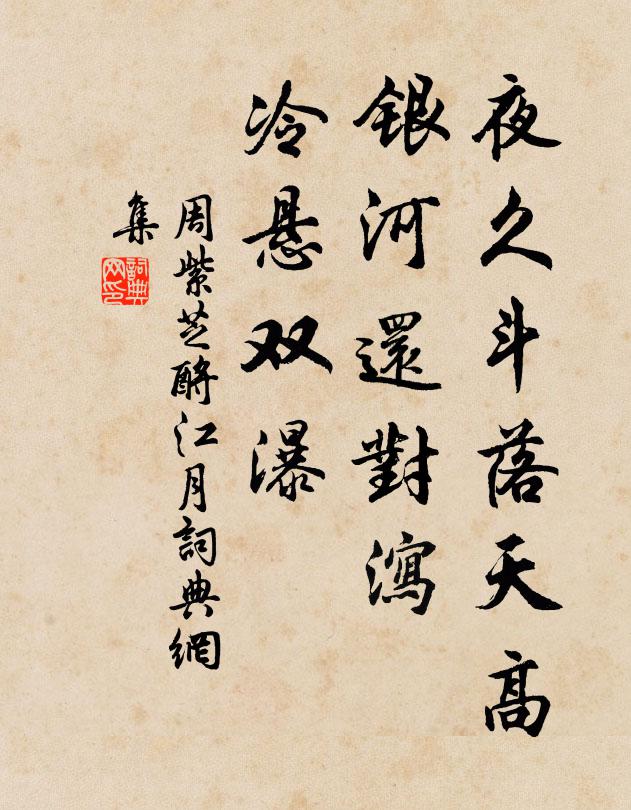 夜久斗落天高
銀河還對瀉
冷悬双瀑
周紫芝酹江月詞典網
集
詞典网印